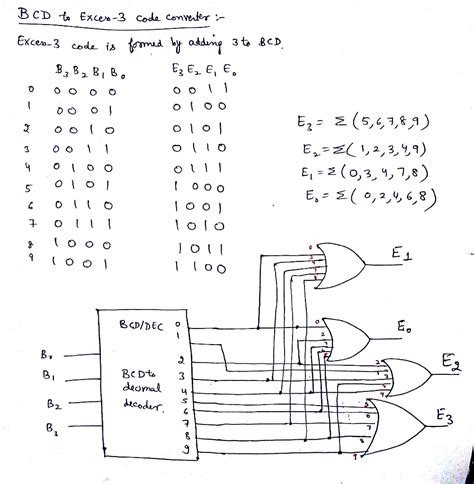 BCD to Excess-3 code converter :-
Excess-3 code is formed by adding 3 to BCD.
B3 B2 B1 B0 E3 E2 E1 E0
0 0 0 0 0 0 0 1 1
1 0 0 0 1 0 1 0 0
2 0 0 1 0 0 1 0 1
3 0 0 1 1 0 1 1 0
4 0 1 0 0 0 1 1 1
5 0 1 0 1 1 0 0 0
6 0 1 1 0 1 0 0 1
7 0 1 1 1 1 0 1 0
8 1 0 0 0 1 0 1 1
9 1 0 0 1 1 1 0 0
E3 = Σ(5,6,7,8,9)
E2 = Σ(1,2,3,4,9)
E1 = Σ(0,3,4,7,8)
E0 = Σ(0,2,4,6,8)
E1
E0
E2
E3
BCD/DEC
BCD to
decimal
decoder.
0
1
2
3
4
5
6
7
8
9
B0
B1
B2
B3